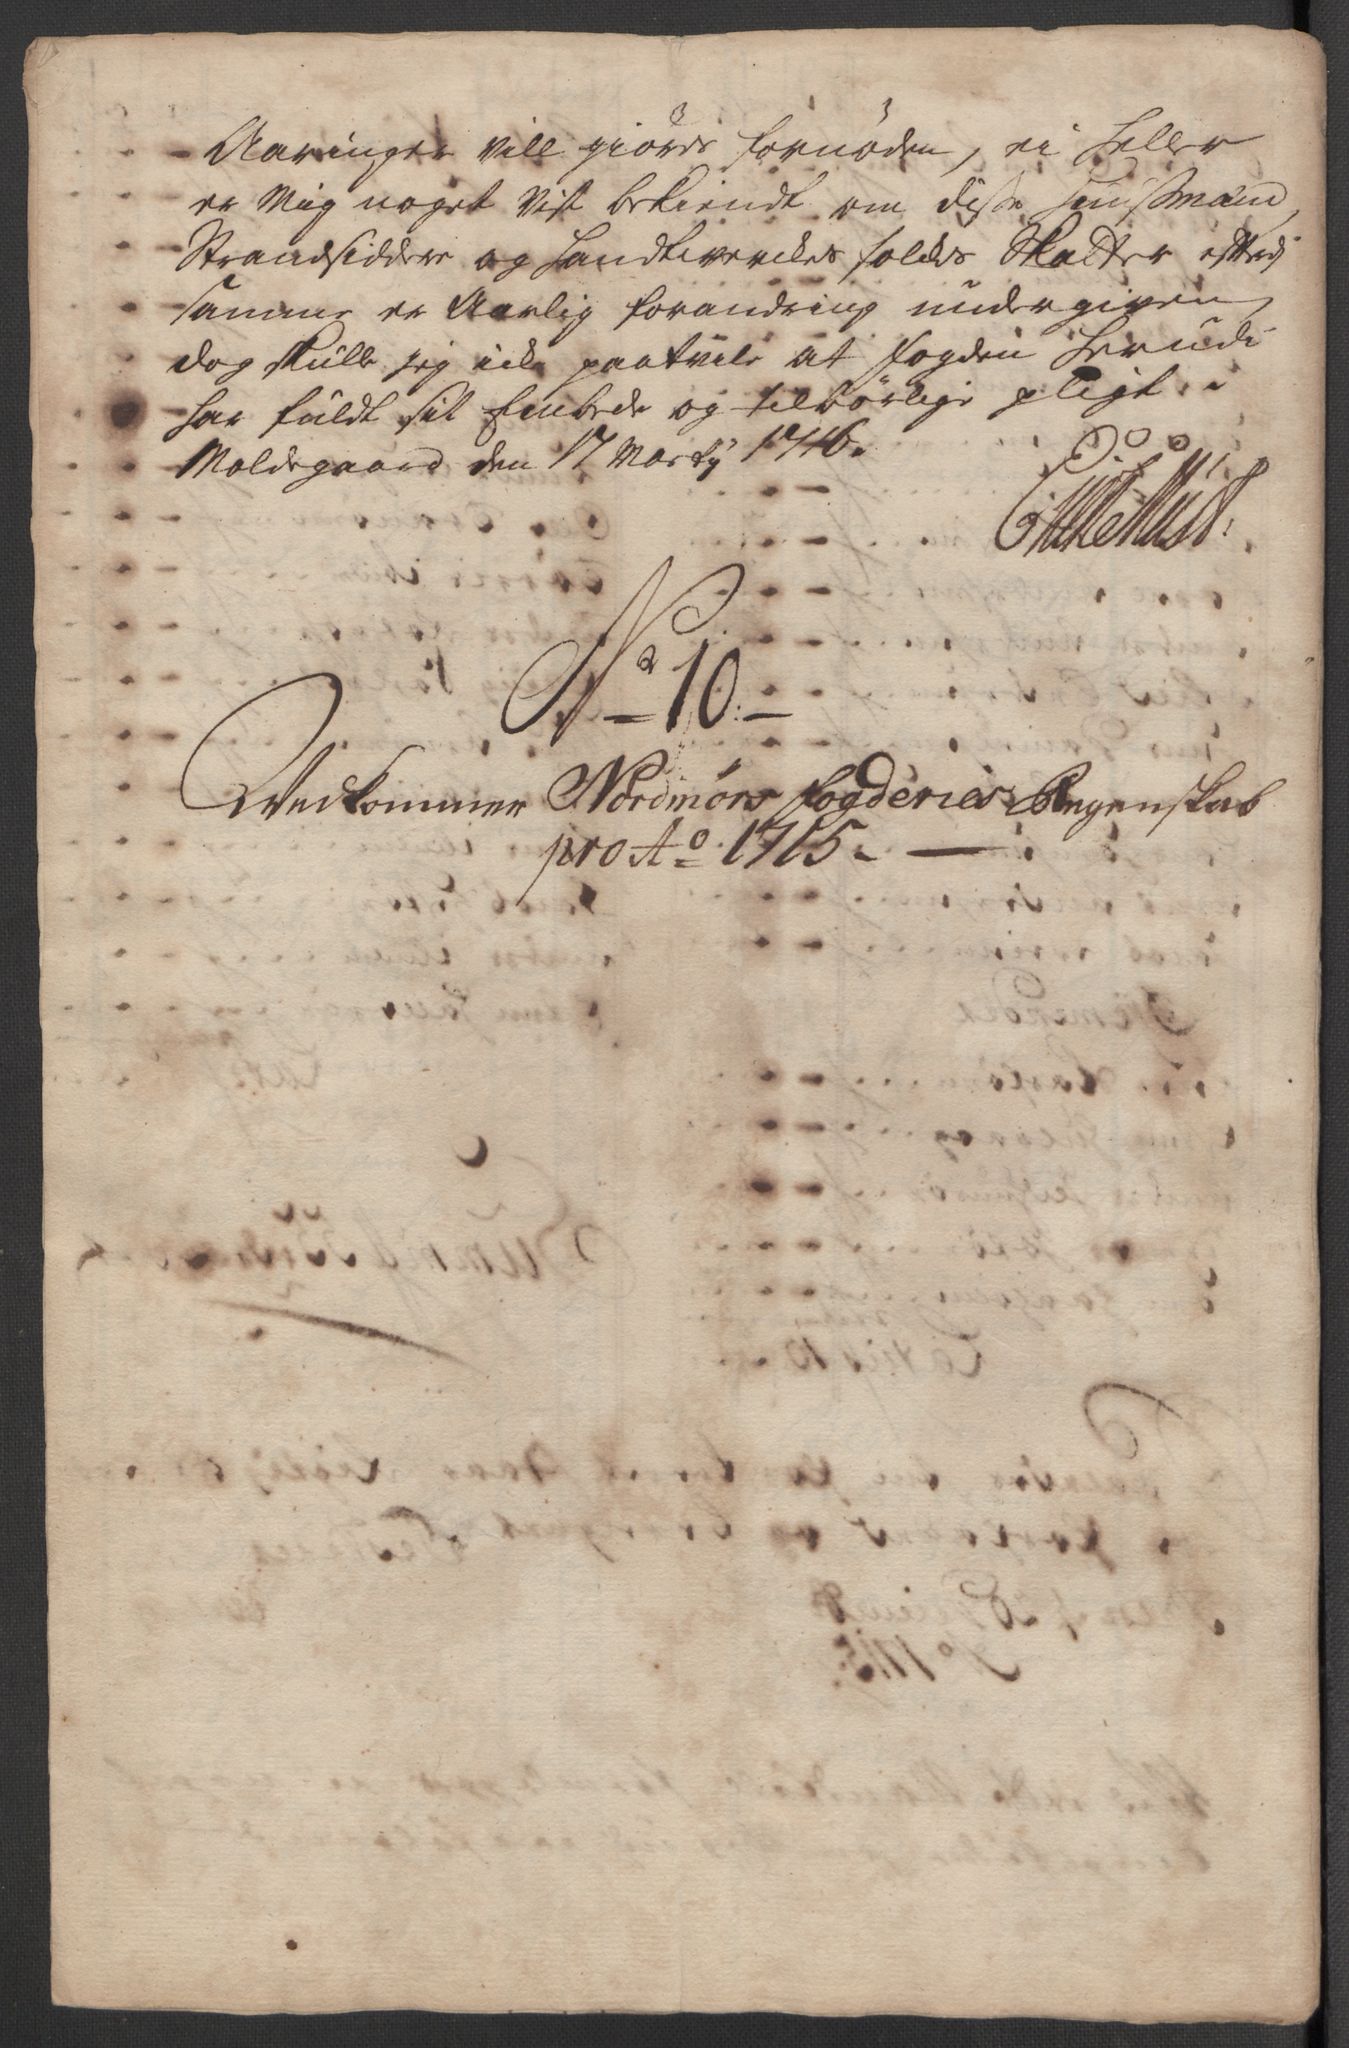 Aaringer vill giøris fornøden, ei heller
er Mig noget Vist bekiendt om disse Huusmænd,
Strandsiddere og Handtverckes folckes Skatter efterdj
samme er Aarlig forandring undergiven,
dog skulle jeg icke paatvile at fogden herudi
har fuldt sit Embede og tilbørlige pligt.
Moldegaard den 17 Marty 1716.
No 10
Vedkommer Nordmørs fogderies Regenskab
pro Ao 1715.